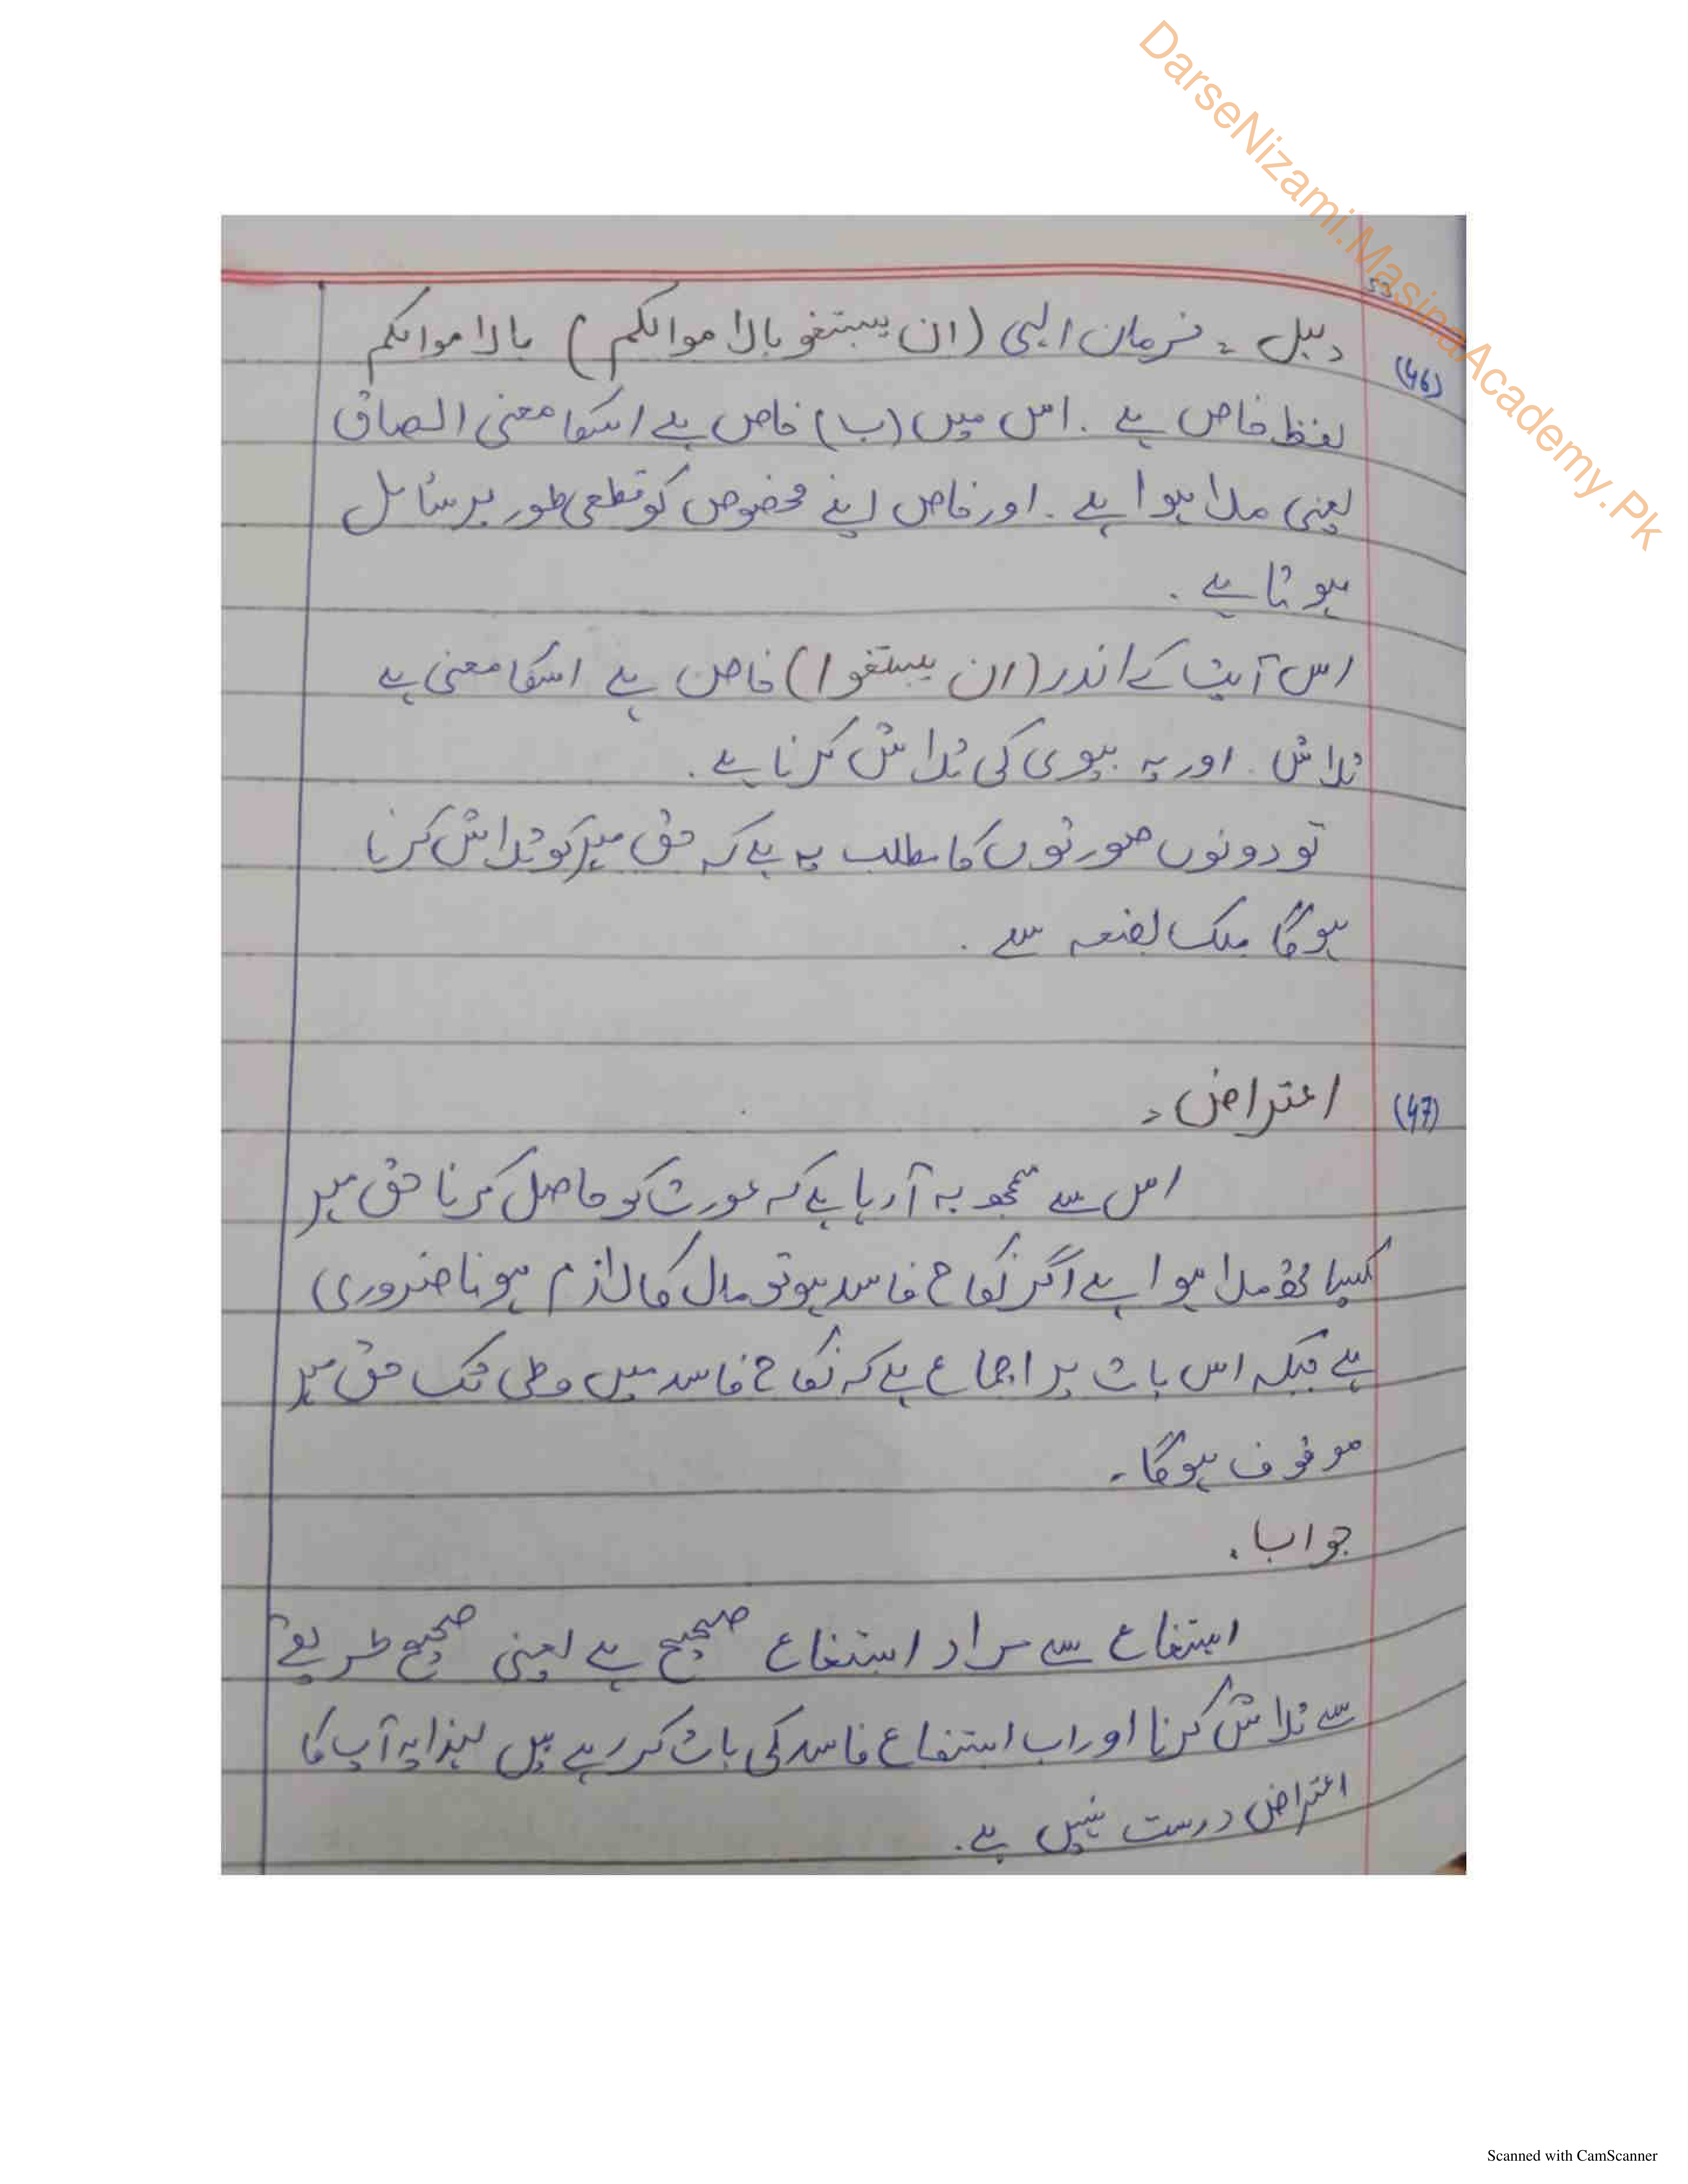 DarseNizami.MasinaAcademy.Pk
53
(46) دلیل : فرمان الہی (ان یبتغو بالا موالکم) بالا موالکم
لفظ خاص ہے . اس میں (ب) خاص ہے اسکا معنی الصاق
یعنی ملا ہوا ہے . اور خاص اپنے مخصوص کو قطعی طور پر شامل
ہوتا ہے .
اس آیت کے اندر (ان یبتغوا) خاص ہے اسکا معنی ہے
تلاش . اور یہ بیوی کی تلاش کرنا ہے .
تو دونوں صورتوں کا مطلب یہ ہے کہ حق مہر کو تلاش کرنا
ہوگا ملک بضعہ سے .
(47) اعتراض :
اس سے سمجھ یہ آ رہا ہے کہ عورت کو حاصل کرنا حق مہر
کیساتھ ملا ہوا ہے اگر نکاح فاسد ہو تو مال کا لازم ہونا ضروری
ہے جبکہ اس بات پر اجماع ہے کہ نکاح فاسد میں وطی تک حق مہر
موقوف ہوگا۔
جواب .
ابتغاء سے مراد ابتغاء صحیح ہے یعنی صحیح طریقے
سے تلاش کرنا اور اب ابتغاء فاسد کی بات کر رہے ہیں لہذا یہ آپ کا
اعتراض درست نہیں ہے .
Scanned with CamScanner